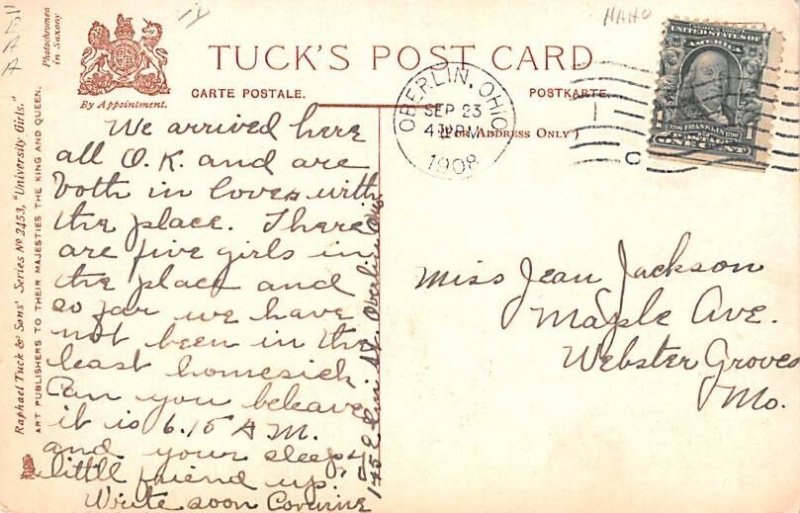 TUCK'S POST CARD
By Appointment.
CARTE POSTALE.
POSTKARTE.
(FOR ADDRESS ONLY)
OBERLIN, OHIO
SEP 23
4 PM
1908
UNITED STATES
OF AMERICA
FRANKLIN
ONE CENT
Photochromed
in Saxony
Raphael Tuck & Sons' Series No 2453, "University Girls."
ART PUBLISHERS TO THEIR MAJESTIES THE KING AND QUEEN.
We arrived here
all O.K. and are
both in love with
the place. There
are five girls in
the place and
so far we have
not been in the
least homesick
Can you beleave
it is 6.15 A.M.
and your sleepy
little friend up.
Write soon Corinne
175 E. Elm St. Oberlin Ohio
Miss Jean Jackson
Maple Ave.
Webster Groves
Mo.